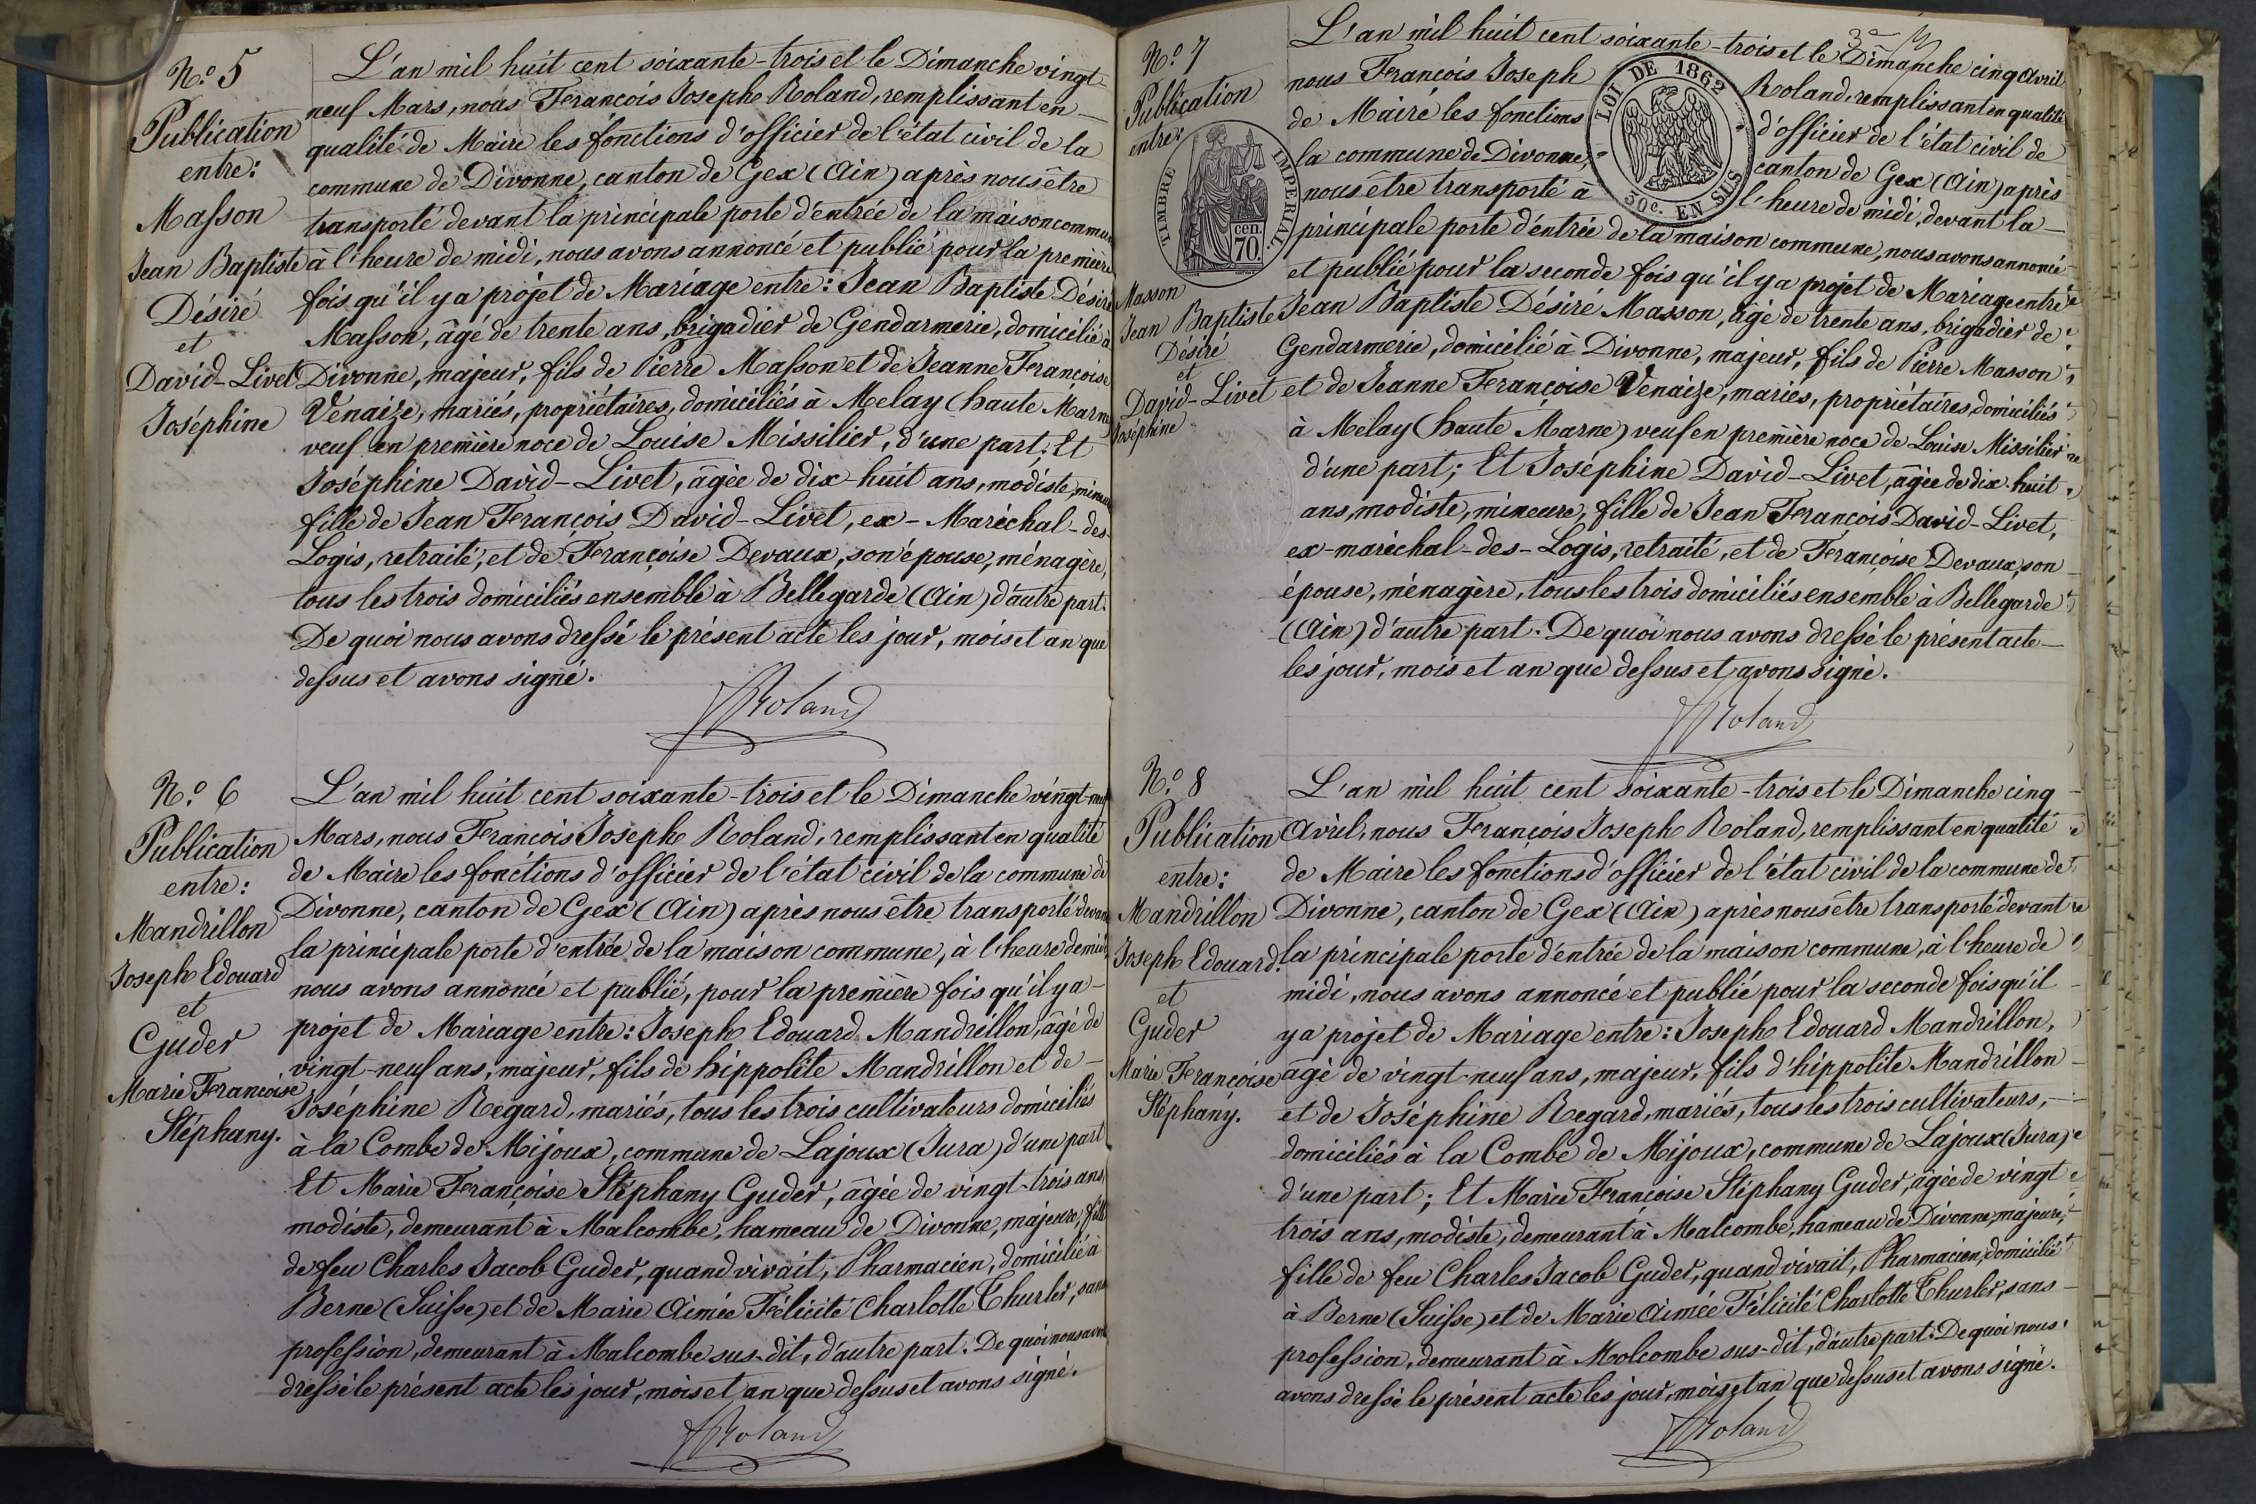 N.o 5
Publication
entre:
Masson
Jean Baptiste
Désiré
et
David-Livet
Joséphine
L'an mil huit cent soixante-trois et le Dimanche vingt-
neuf Mars, nous François Joseph Roland, remplissant en
qualité de Maire les fonctions d'officier de l'état civil de la
commune de Divonne, canton de Gex (Ain) après nous être
transporté devant la principale porte d'entrée de la maison commune
à l'heure de midi, nous avons annoncé et publié pour la première
fois qu'il y a projet de Mariage entre: Jean Baptiste Désiré
Masson, âgé de trente ans, brigadier de Gendarmerie, domicilié à
Divonne, majeur, fils de Pierre Masson et de Jeanne Françoise
Venaize, mariés, propriétaires, domiciliés à Melay (haute Marne
veuf en première noce de Louise Missilier, d'une part; Et
Joséphine David-Livet, âgée de dix-huit ans, modiste, mineure
fille de Jean François David-Livet, ex-Maréchal-des-
Logis, retraité, et de Françoise Devaux, son épouse, ménagère,
tous les trois domiciliés ensemble à Bellegarde (Ain) d'autre part.
De quoi nous avons dressé le présent acte les jour, mois et an que
dessus et avons signé.
Roland
N.o 6
Publication
entre:
Mandrillon
Joseph Edouard
et
Guder
Marie Françoise
Stéphany.
L'an mil huit cent soixante-trois et le Dimanche vingt-neuf
Mars, nous François Joseph Roland, remplissant en qualité
de Maire les fonctions d'officier de l'état civil de la commune de
Divonne, canton de Gex (Ain) après nous être transporté devant
la principale porte d'entrée de la maison commune, à l'heure de midi
nous avons annoncé et publié, pour la première fois qu'il y a
projet de Mariage entre: Joseph Edouard Mandrillon, âgé de
vingt-neuf ans, majeur, fils de hippolite Mandrillon et de
Joséphine Regard, mariés, tous les trois cultivateurs domiciliés
à la Combe de Mijoux, commune de Lajoux (Jura) d'une part
Et Marie Françoise Stéphany Guder, âgée de vingt-trois ans,
modiste, demeurant à Malcombe, hameau de Divonne, majeure, fille
de feu Charles Jacob Guder, quand vivait, Pharmacien, domicilié à
Berne (Suisse) et de Marie Aimée Félicité Charlotte Thurler, sans
profession, demeurant à Malcombe sus-dit, d'autre part. De quoi nous avons
dressé le présent acte les jour, mois et an que dessus et avons signé.
Roland
N.o 7
Publication
entre:
Masson
Jean Baptiste
Désiré
et
David-Livet
Joséphine
TIMBRE IMPERIAL
cen.
70.
LOI DE 1862
30c. EN SUS
L'an mil huit cent soixante-trois et le Dimanche cinq Avril
nous François Joseph Roland, remplissant en qualité
de Maire les fonctions d'officier de l'état civil de
la commune de Divonne, canton de Gex (Ain) après
nous être transporté à l'heure de midi, devant la
principale porte d'entrée de la maison commune, nous avons annoncé
et publié pour la seconde fois qu'il y a projet de Mariage entre
Jean Baptiste Désiré Masson, âgé de trente ans, brigadier de
Gendarmerie, domicilié à Divonne, majeur, fils de Pierre Masson
et de Jeanne Françoise Venaize, mariés, propriétaires, domiciliés
à Melay (haute Marne) veuf en première noce de Louise Missilier
d'une part; Et Joséphine David-Livet, âgée de dix-huit
ans, modiste, mineure, fille de Jean François David-Livet,
ex-maréchal-des-Logis, retraité, et de Françoise Devaux, son
épouse, ménagère, tous les trois domiciliés ensemble à Bellegarde
(Ain) d'autre part. De quoi nous avons dressé le présent acte
les jour, mois et an que dessus et avons signé.
Roland
N.o 8
Publication
entre:
Mandrillon
Joseph Edouard.
et
Guder
Marie Françoise
Stéphany.
L'an mil huit cent soixante-trois et le Dimanche cinq
Avril, nous François Joseph Roland, remplissant en qualité
de Maire les fonctions d'officier de l'état civil de la commune de
Divonne, canton de Gex (Ain) après nous être transporté devant
la principale porte d'entrée de la maison commune, à l'heure de
midi, nous avons annoncé et publié pour la seconde fois qu'il
y a projet de Mariage entre: Joseph Edouard Mandrillon,
âgé de vingt-neuf ans, majeur, fils d'hippolite Mandrillon
et de Joséphine Regard, mariés, tous les trois cultivateurs,
domiciliés à la Combe de Mijoux, commune de Lajoux (Jura)
d'une part; Et Marie Françoise Stéphany Guder, âgée de vingt
trois ans, modiste, demeurant à Malcombe, hameau de Divonne, majeure,
fille de feu Charles Jacob Guder, quand vivait, Pharmacien, domicilié
à Berne (Suisse) et de Marie Aimée Félicité Charlotte Thurler, sans
profession, demeurant à Molcombe sus-dit, d'autre part. De quoi nous
avons dressé le présent acte les jour, mois et an que dessus et avons signé.
Roland